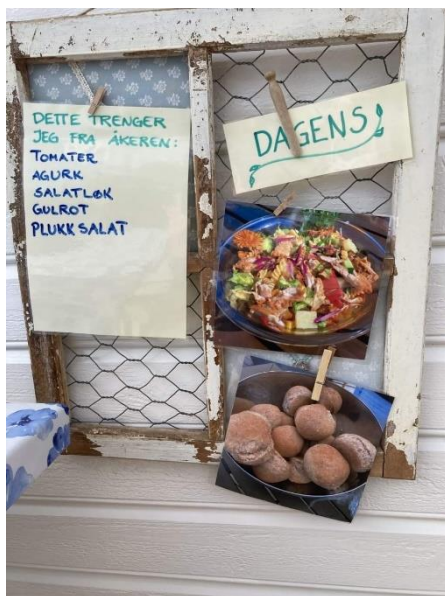 DETTE TRENGER
JEG FRA ÅKEREN:
TOMATER
AGURK
SALATLØK
GULROT
PLUKKSALAT
DAGENS!